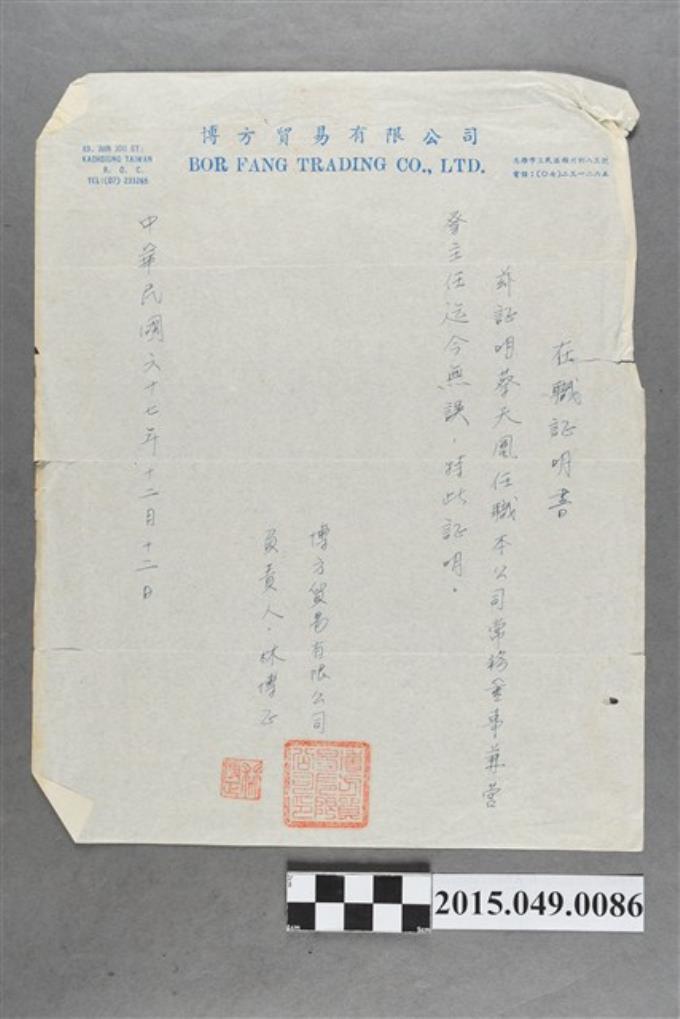 博方貿易有限公司
BOR FANG TRADING CO., LTD.
KAOHSIUNG TAIWAN
R. O. C.
TEL:(07) 231265
電話：(〇七)二三一二六五
在職証明書
茲証明蔡天鳳任職本公司常務董事兼營
發主任迄今無誤，特此証明。
博方貿易有限公司
負責人．林博正
中華民國六十七年十二月十二日
2015.049.0086